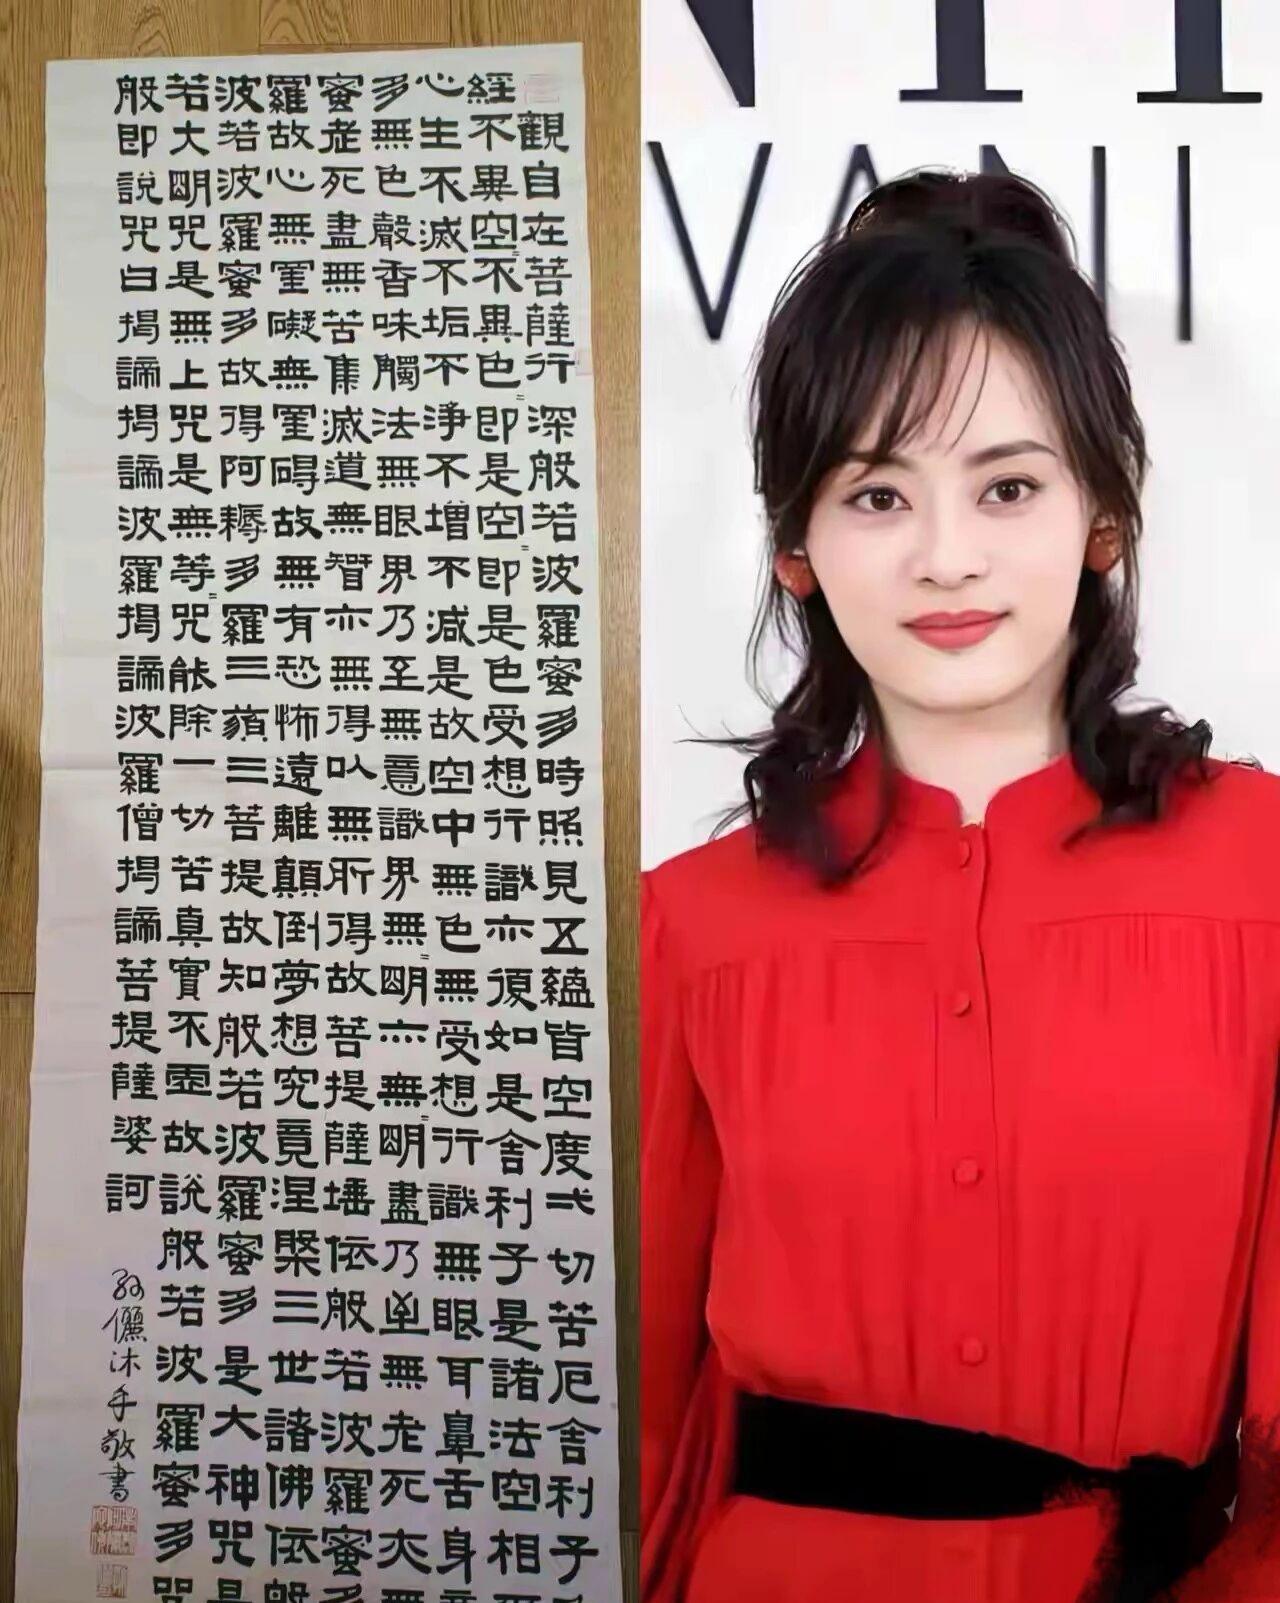 般若波羅蜜多心經
觀自在菩薩行深般若波羅蜜多時照見五蘊皆空度一切苦厄舍利子
不異空〻不異色〻即是空〻即是色受想行識亦復如是舍利子是諸法空相
生不滅不垢不淨不增不減是故空中無色無受想行識無眼耳鼻舌身意
無色聲香味觸法無眼界乃至無意識界無〻明亦無〻明盡乃至無老死亦無
老死盡無苦集滅道無智亦無得以無所得故菩提薩埵依般若波羅蜜多
故心無罣礙無罣碍故無有恐怖遠離顛倒夢想究竟涅槃三世諸佛依般
若波羅蜜多故得阿耨多羅三藐三菩提故知般若波羅蜜多是大神咒是
大明咒是無上咒是無等〻咒能除一切苦真實不虛故說般若波羅蜜多咒
即說咒曰揭諦揭諦波羅揭諦波羅僧揭諦菩提薩婆訶
孫儷沐手敬書